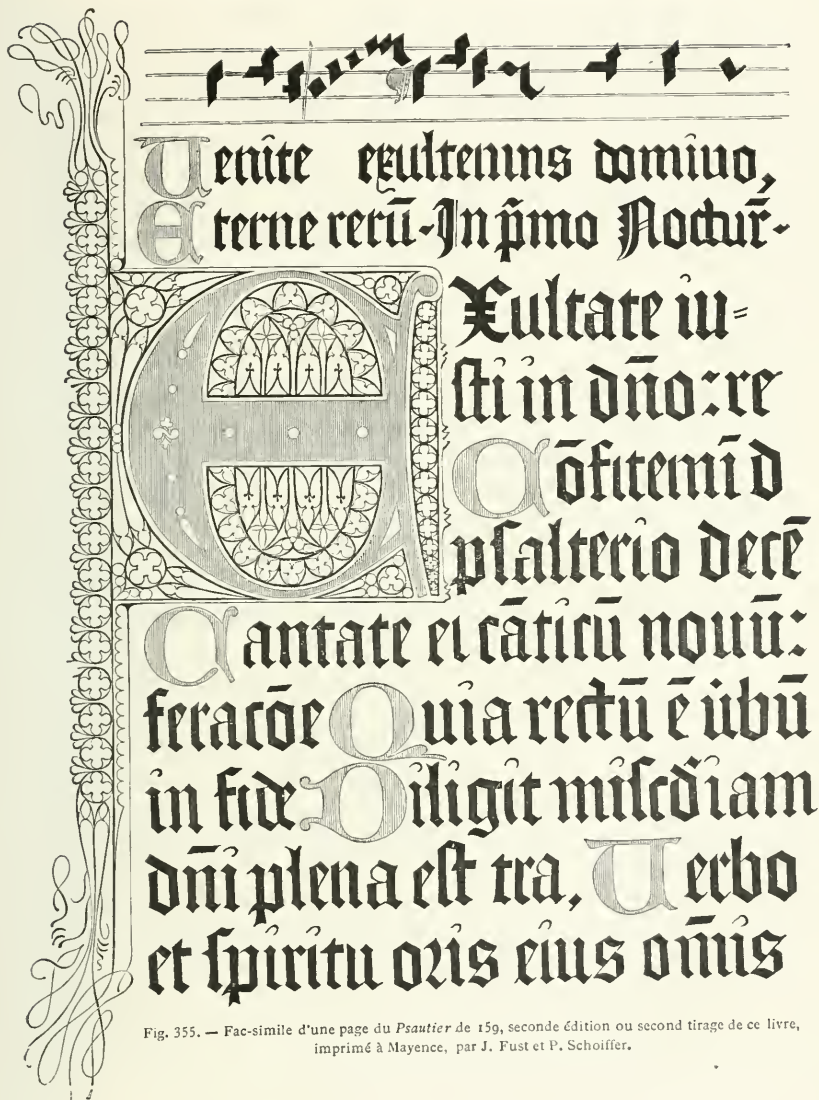 Uenite exultemns domino,
Eterne rerū-In pͥmo Noctur̄-
EXultate iu=
sti in dño: re
Cōfitemī d
psalterio decē
Cantate ei cāticū nouū:
feracōe Quia rectū ē ūbū
in fide Diligit misēdiam
dñi plena est tra, Uerbo
et spiritu oris eius om̄is
Fig. 355. — Fac-simile d'une page du Psautier de 159, seconde édition ou second tirage de ce livre,
imprimé à Mayence, par J. Fust et P. Schoiffer.